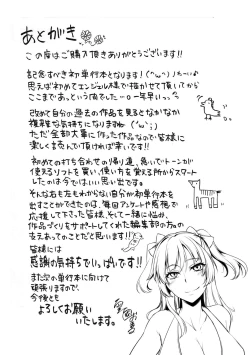 あとがき
この度はご購入頂きありがとうございます!!
記念すべき初単行本となります!
思えば初めてエンジェル様で描かせて頂いてから
ここまであっという間でした…の1年早いっ。
改めて自分の過去の作品を見るとなかなか
複雑な気持ちになりますね
ただ全部大事に作った作品なので皆様に
楽しま読んで頂ければ幸いです!!
初めての打ち合わせの帰り道、急いでトーンが
使えるソフトを買い、使い方を覚える所からスタート
したのは今ではいい思い出です。
そんな右も左もわからない自分が初単行本を
出すことができたのは、毎回アンケートや感想で
応援して下さった皆様、そして一緒に悩み、
作品づくりをサポートしてくれた編集部の方の
支えあってのことだと思います!!
皆様には
感謝の気持ちでいっぱいです!!
また次の単行本に向けて
頑張りますので、
今後とも
よろしくお願い
いたします。